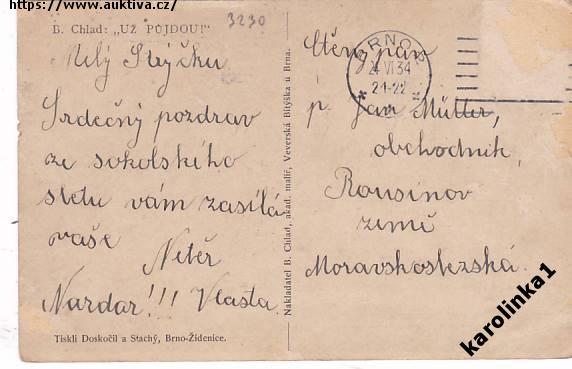 https://www.auktiva.cz/
B. Chlad: „UŽ PŮJDOU!"
3230
Milý Strýčku
Srdečný pozdrav
ze sokolského
sletu vám zasílá
vaše Neteř
Nazdar!!! Vlasta.
Tiskli Doskočil a Stachý, Brno-Židenice.
Nakladatel B. Chlad, akad. malíř, Veverská Bitýška u Brna.
BRNO
24 VI 34
21-22
Ctěný pán
p. Jan Müller,
obchodník,
Rousinov
země
Moravskoslezská.
karolinka1